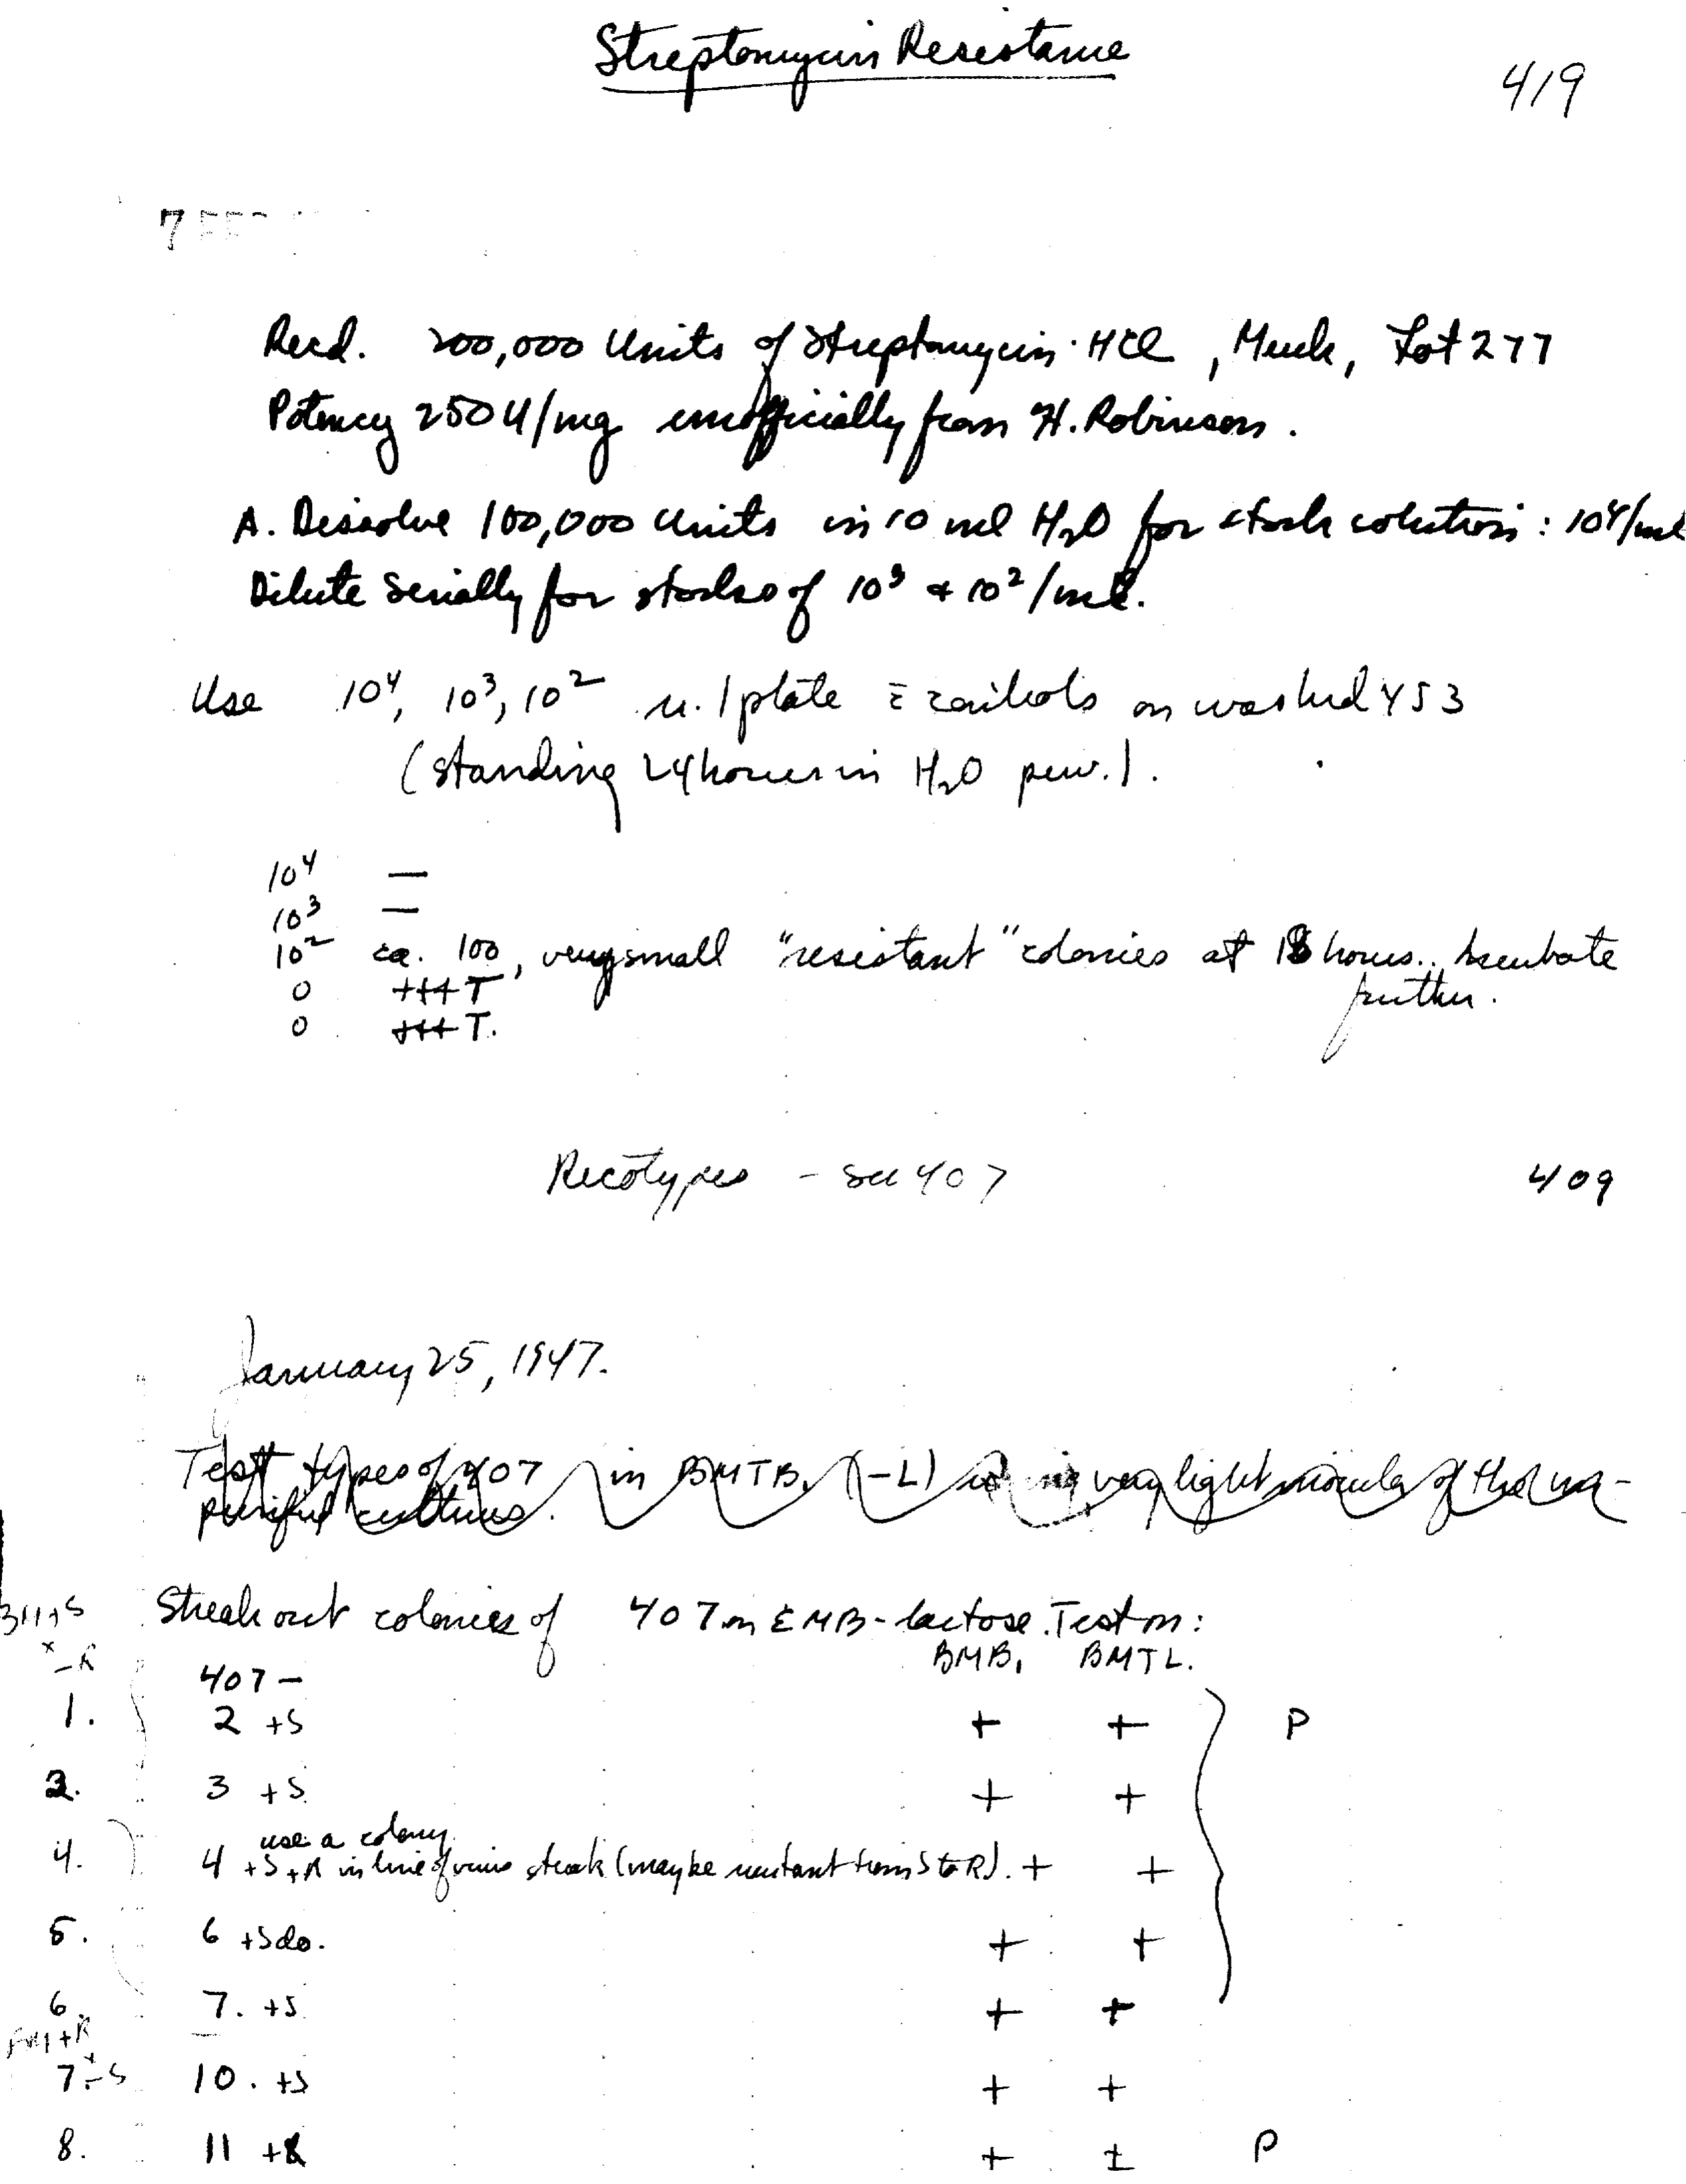 Streptomycin Resistance
419
7 FEB
Recd. 200,000 Units of Streptomycin·HCl, Merck, Lot 277
Potency 250 U/mg unofficially from H. Robinson.
A. Dissolve 100,000 Units in 10 ml H2O for stock solution: 10⁴/ml
Dilute Serially for stocks of 10³ + 10²/ml.
Use 10⁴, 10³, 10² u./plate c̄ controls on washed Y53
(standing 24 hours in H2O prev.).
10⁴ —
10³ —
10² ca. 100, very small "resistant" colonies at 18 hours. Incubate
further.
0 +++ T
0 +++ T.
Recotypes - see 407
409
January 25, 1947.
Test types of 407 in BMTB, (-L) using very light inocula of the un-
purified cultures.
Streak out colonies of 407 on EMB-lactose. Test on:
BMB₁ BMTL.
407-
- R
1. 2 +S + + P
2. 3 +S + +
use a colony
4. 4 +S +R in line of streak (maybe mutant from S to R). + +
5. 6 +S do. + +
6. 7. +S + +
7. - S 10. +S + +
8. 11 + + ± P